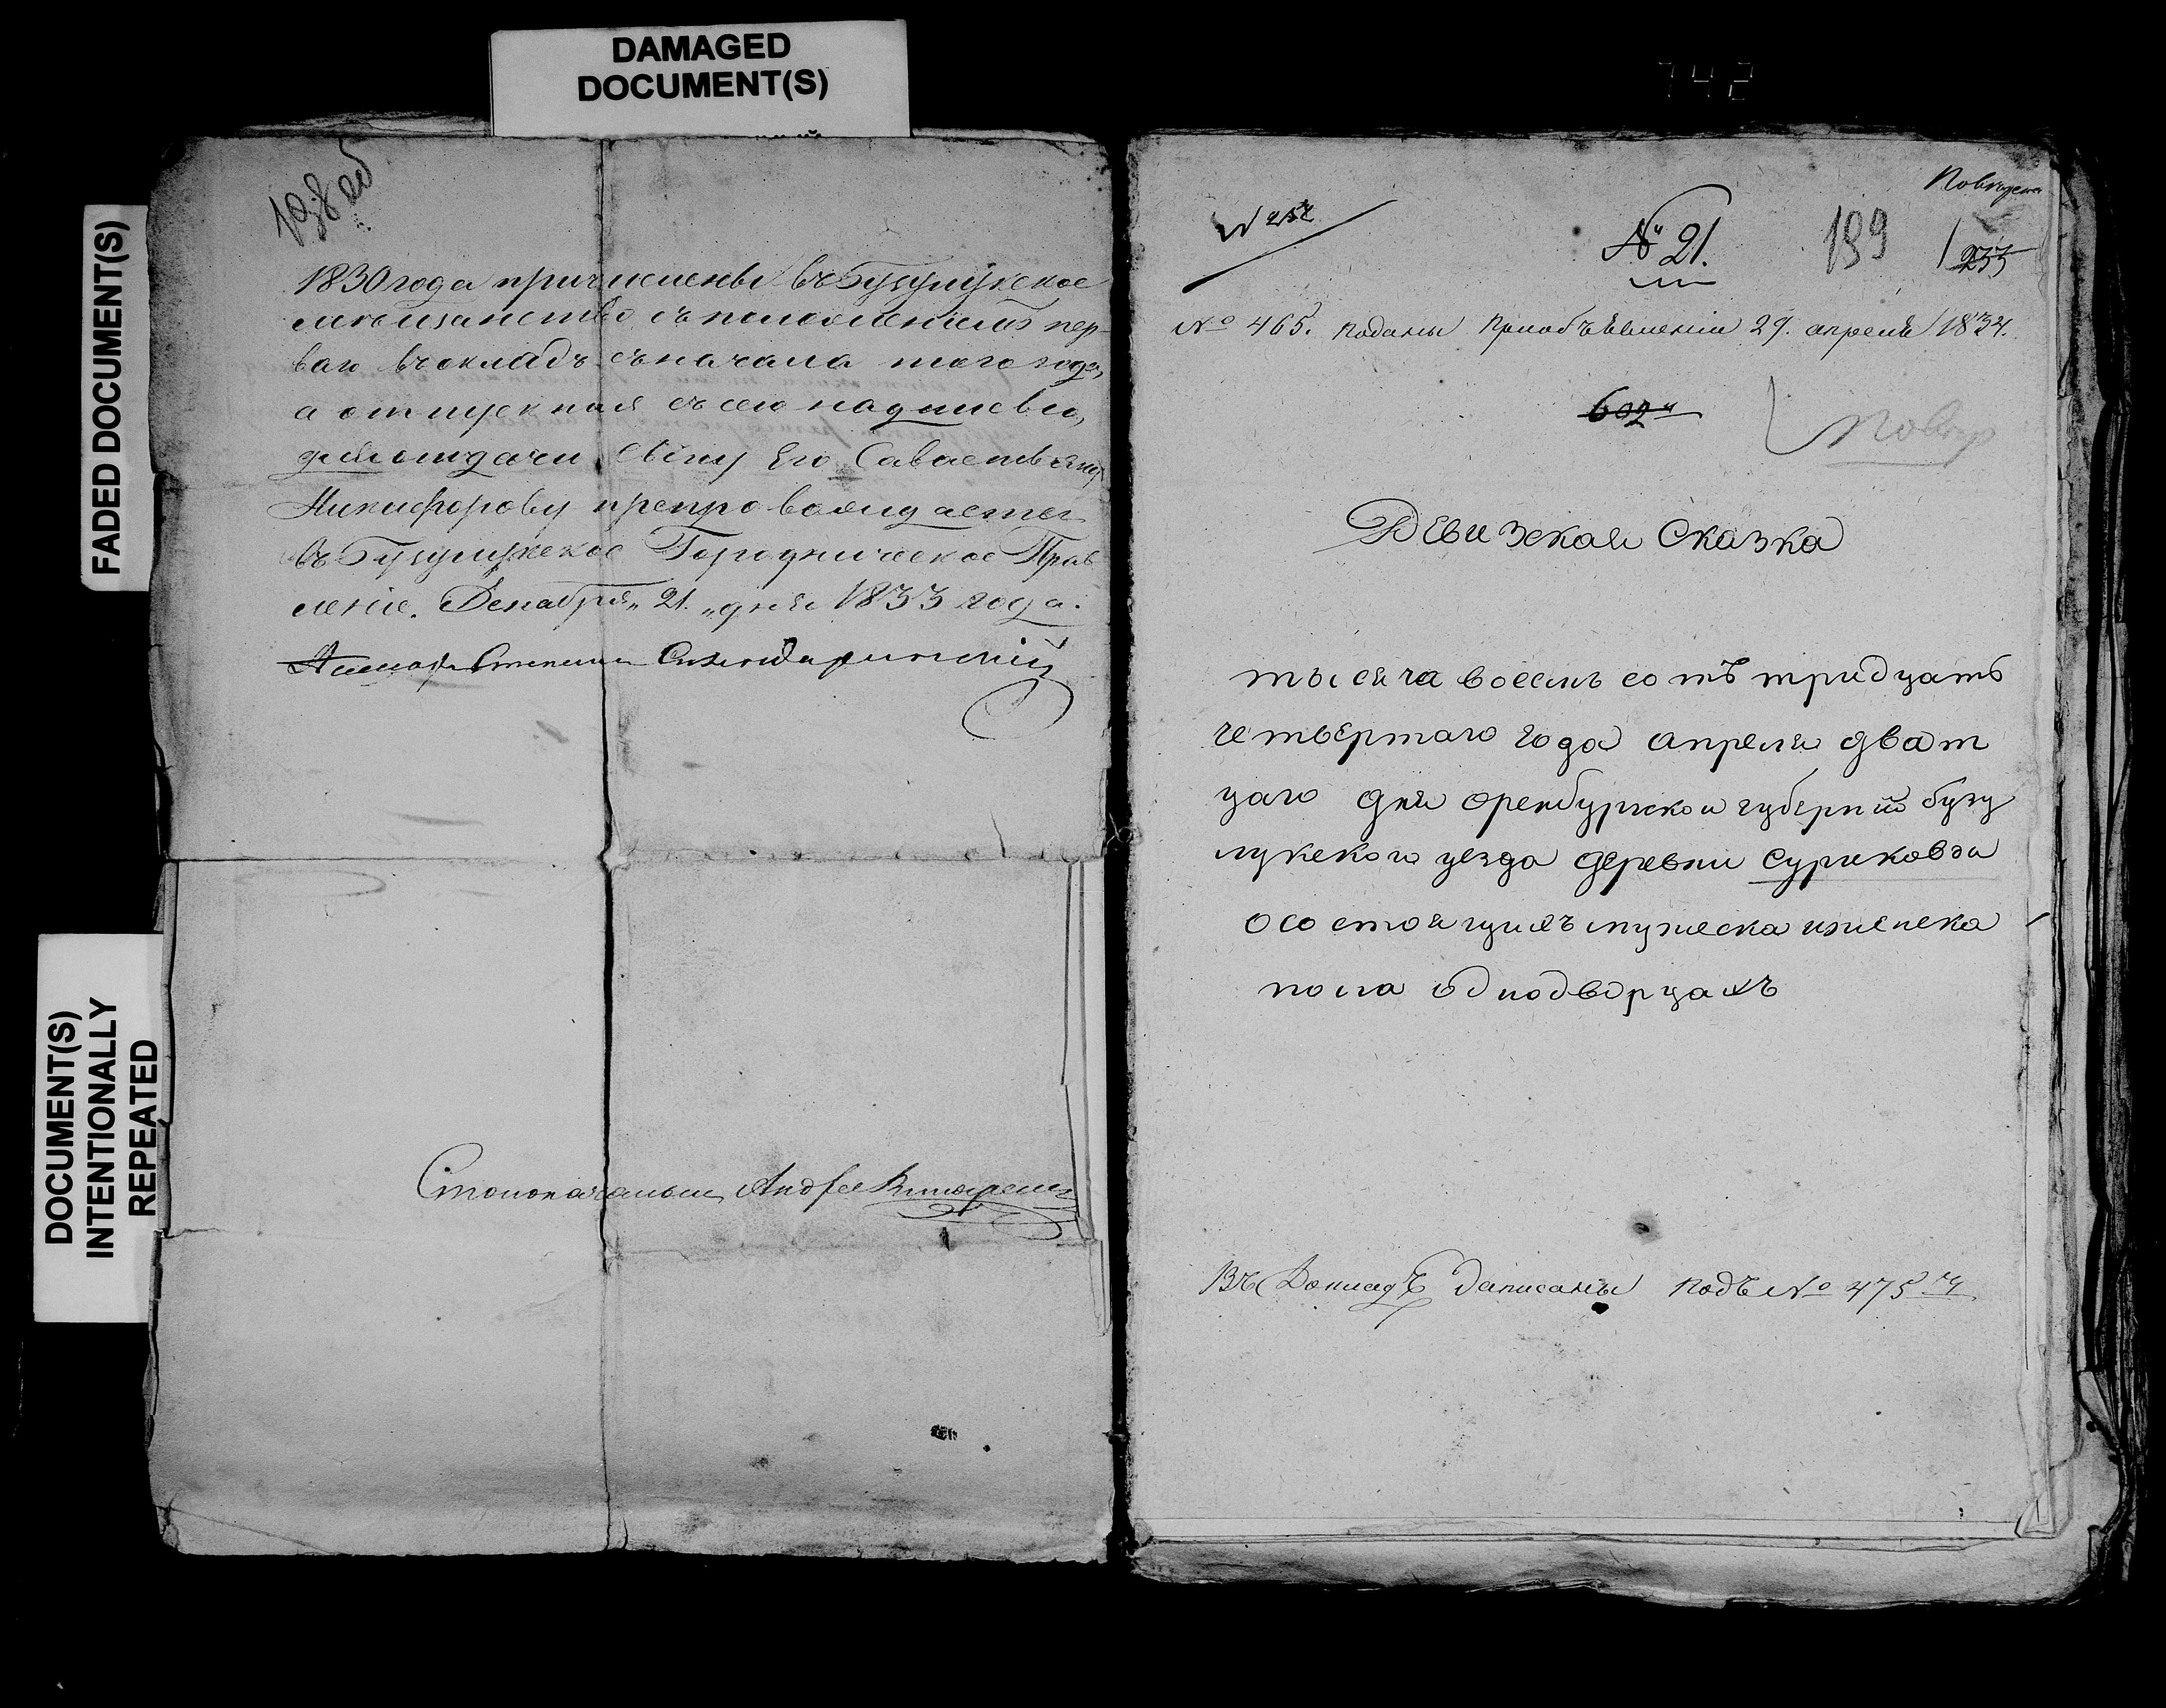 DAMAGED
DOCUMENT(S)
FADED DOCUMENT(S)
DOCUMENT(S)
INTENTIONALLY
REPEATED
742
198 об
1830 года причислены въ Бузулукское
мѣщанство съ положеніемъ пер-
ваго въ окладъ съ начала того года,
а отпускная съ сею надписью,
для отдачи сыну Его Савастьяну
Никифорову препровождается
въ Бузулукское Городническое Прав
леніе. Декабря „21„ дня 1833 года.
Столоначальникъ Андрей
№ 21.
189
233
№ 465. поданы при объявленіи 29. апреля 1834.
602
Ревизская Сказка
тысяча восемь сотъ тридцать
четвертаго года апреля дват
цаго дня оренбургской губерніи бузу
лукского уезда деревни Суриковой
о состоящихъ мужеска и женска
пола однодворцахъ
Въ Докладъ Записаны подъ № 475